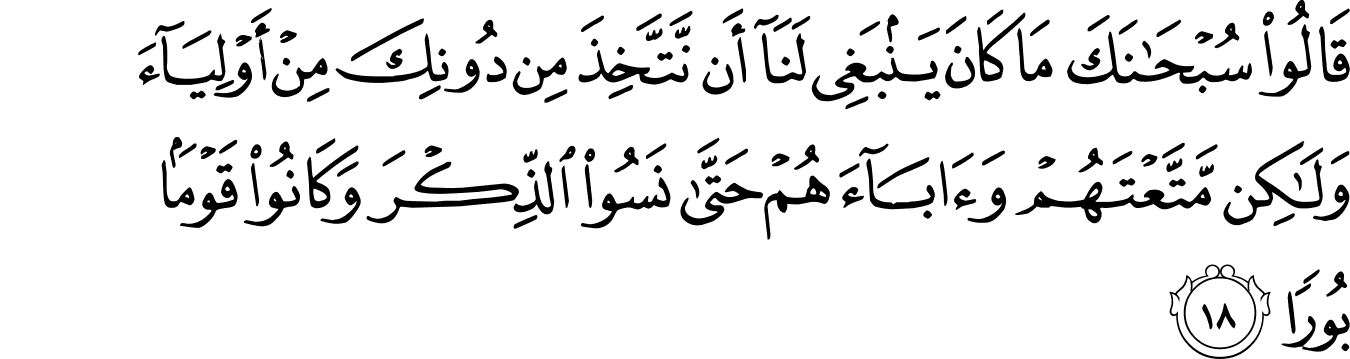 قَالُوا۟ سُبْحَـٰنَكَ مَا كَانَ يَنۢبَغِى لَنَآ أَن نَّتَّخِذَ مِن دُونِكَ مِنْ أَوْلِيَآءَ
وَلَـٰكِن مَّتَّعْتَهُمْ وَءَابَآءَهُمْ حَتَّىٰ نَسُوا۟ ٱلذِّكْرَ وَكَانُوا۟ قَوْمَۢا
بُورًا ١٨